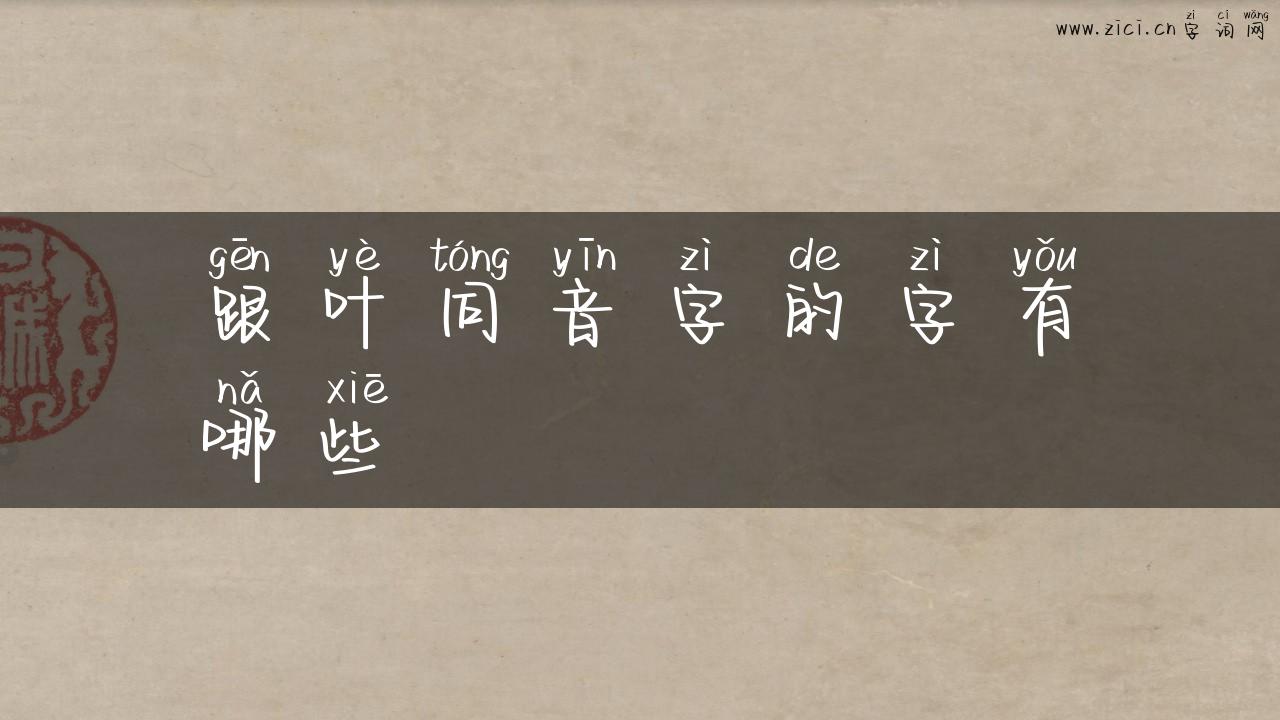 zì cí wǎng
www.zici.cn 字 词 网
gēn yè tóng yīn zì de zì yǒu
跟 叶 同 音 字 的 字 有
nǎ xiē
哪 些